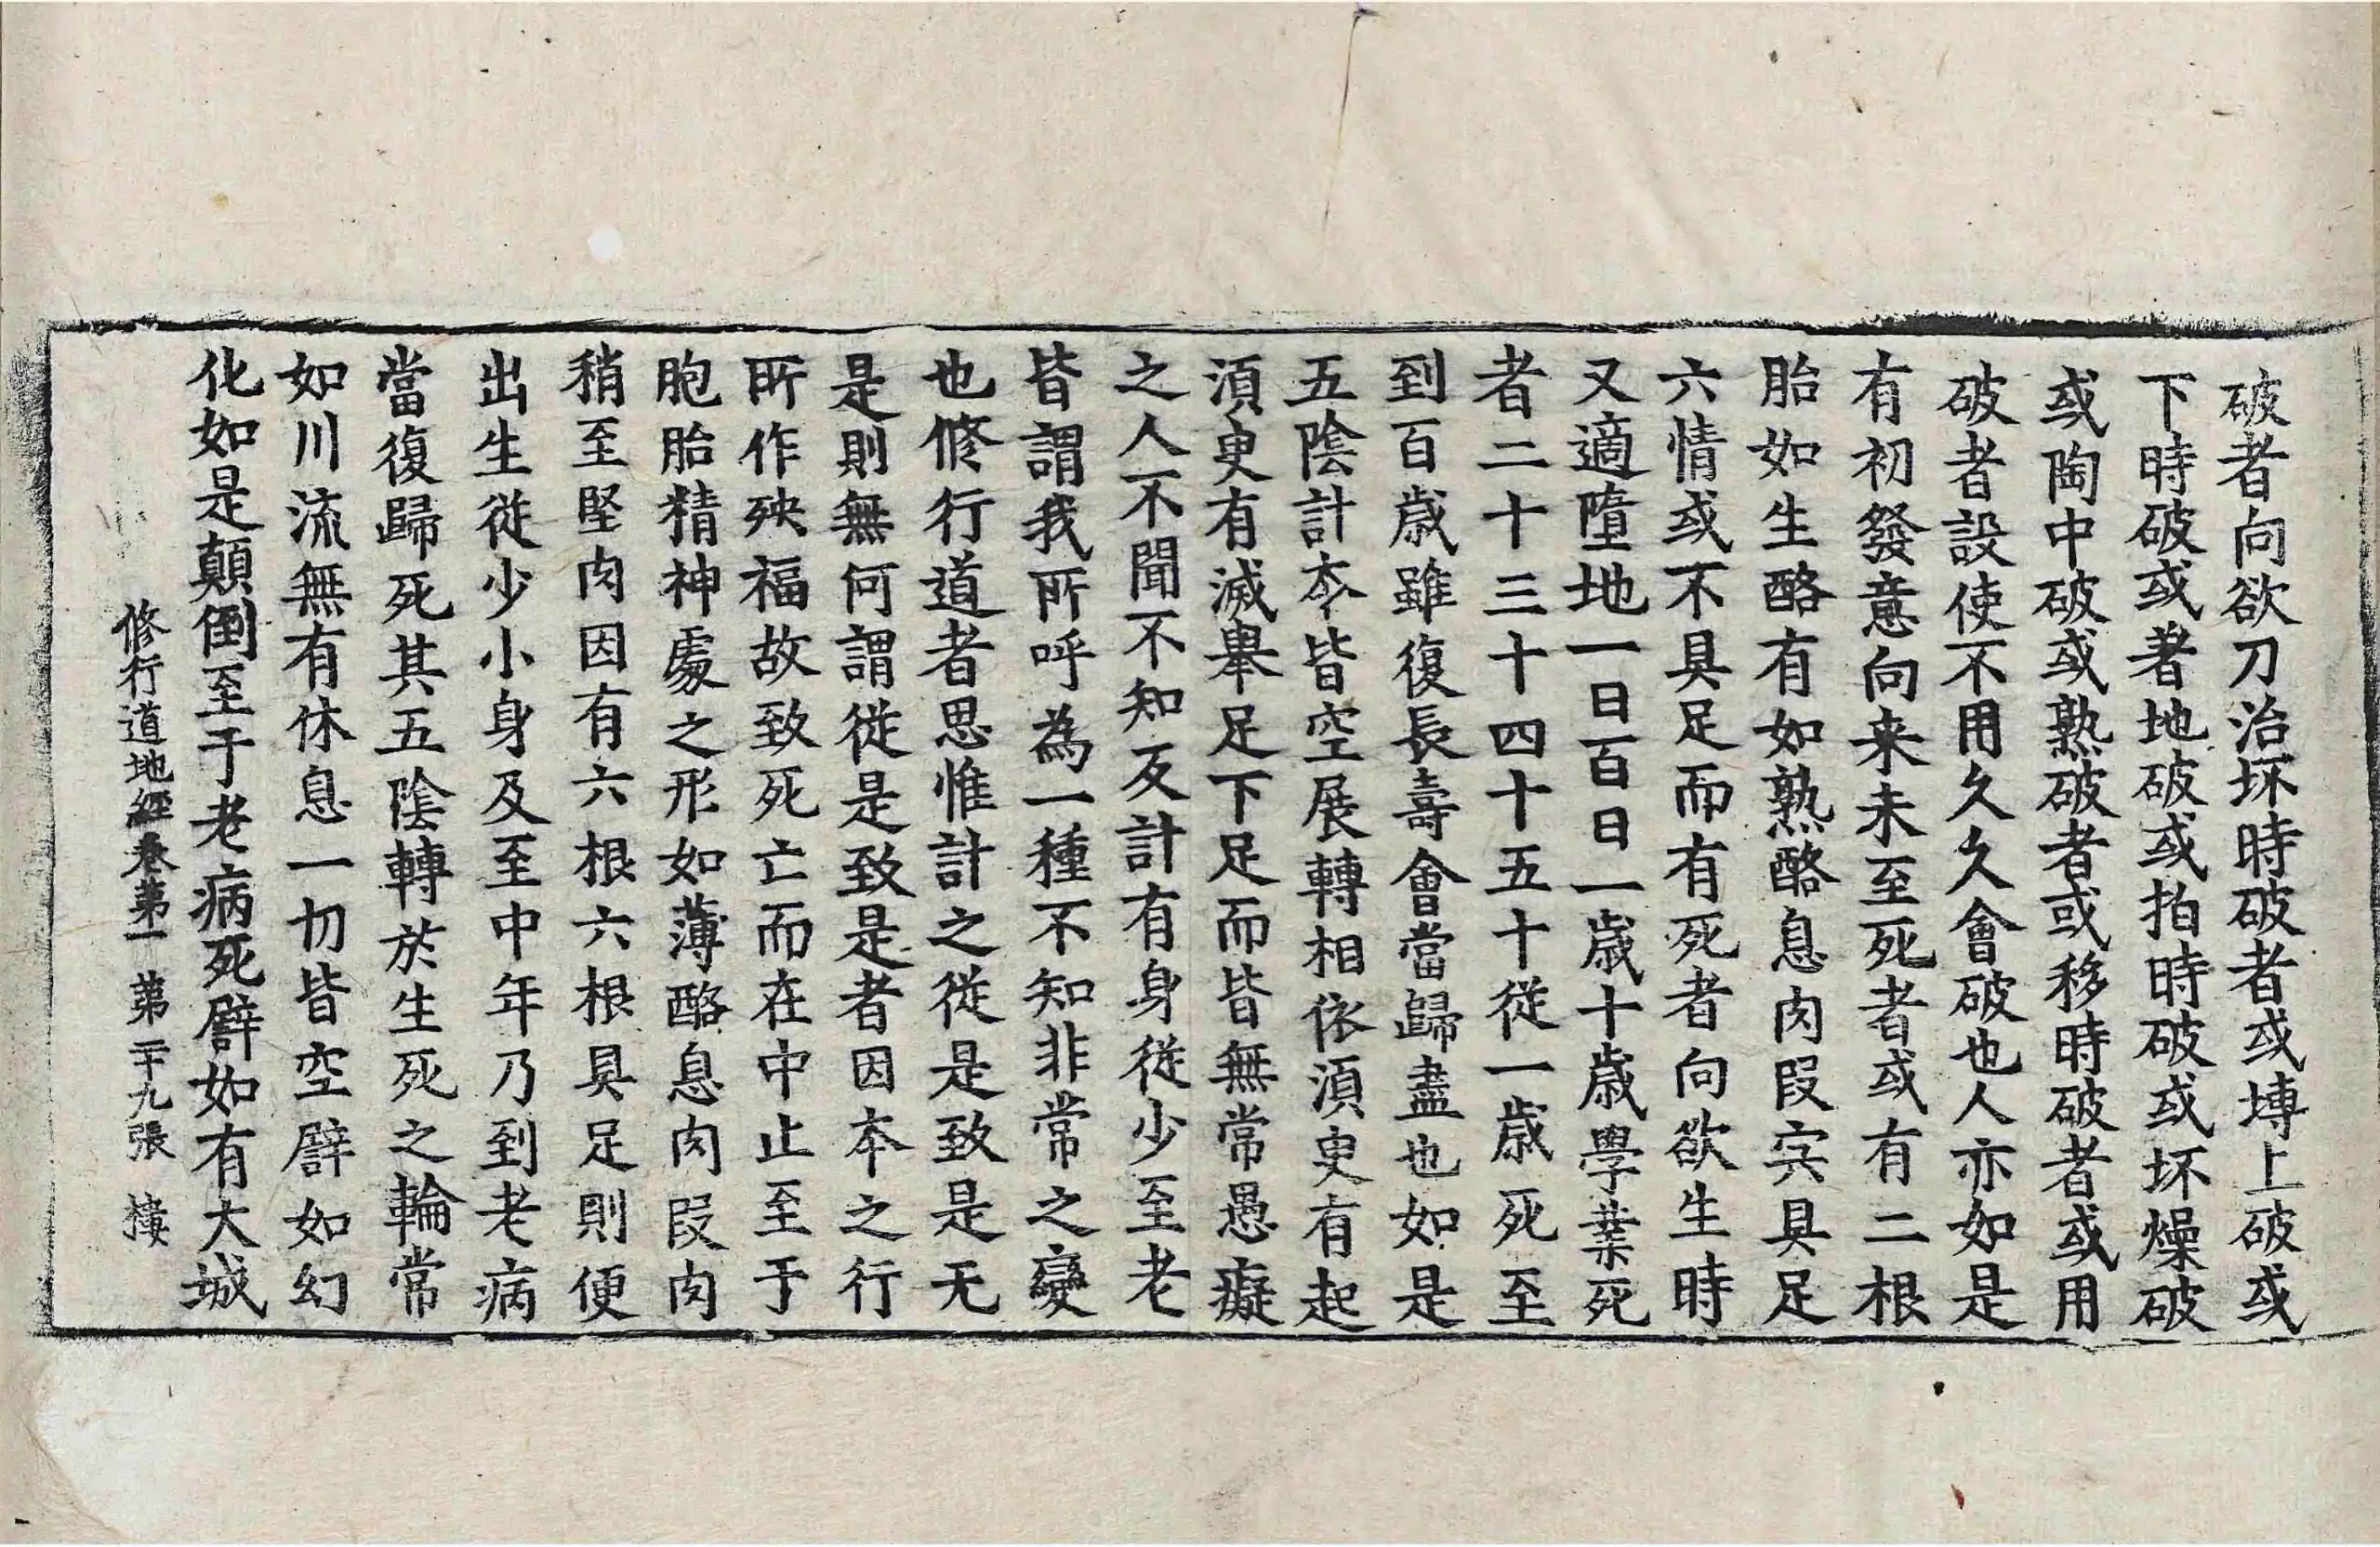 破者向欲刀治坏時破者或塼上破或
下時破或著地破或拍時破或坏燥破
或陶中破或熟破者或移時破者或用
破者設使不用久久會破也人亦如是
有初發意向来未至死者或有二根
胎如生酪有如熟酪息肉段㝎具足
六情或不具足而有死者向欲生時
又適墮地一日百日一歲十歲學業死
者二十三十四十五十從一歲死至
到百歲雖復長壽會當歸盡也如是
五陰計夲皆空展轉相依湏臾有起
湏臾有滅舉足下足而皆無常愚癡
之人不聞不知反計有身從少至老
皆謂我所呼為一種不知非常之變
也修行道者思惟計之從是致是无
是則無何謂從是致是者因夲之行
所作殃福故致死亡而在中止至于
胞胎精神處之形如薄酪息肉段肉
稍至堅肉因有六根六根具足則便
出生從少小身及至中年乃到老病
當復歸死其五陰轉於生死之輪常
如川流無有休息一切皆空譬如幻
化如是顛倒至于老病死譬如有大城
修行道地經卷第一 第二十九張 棲